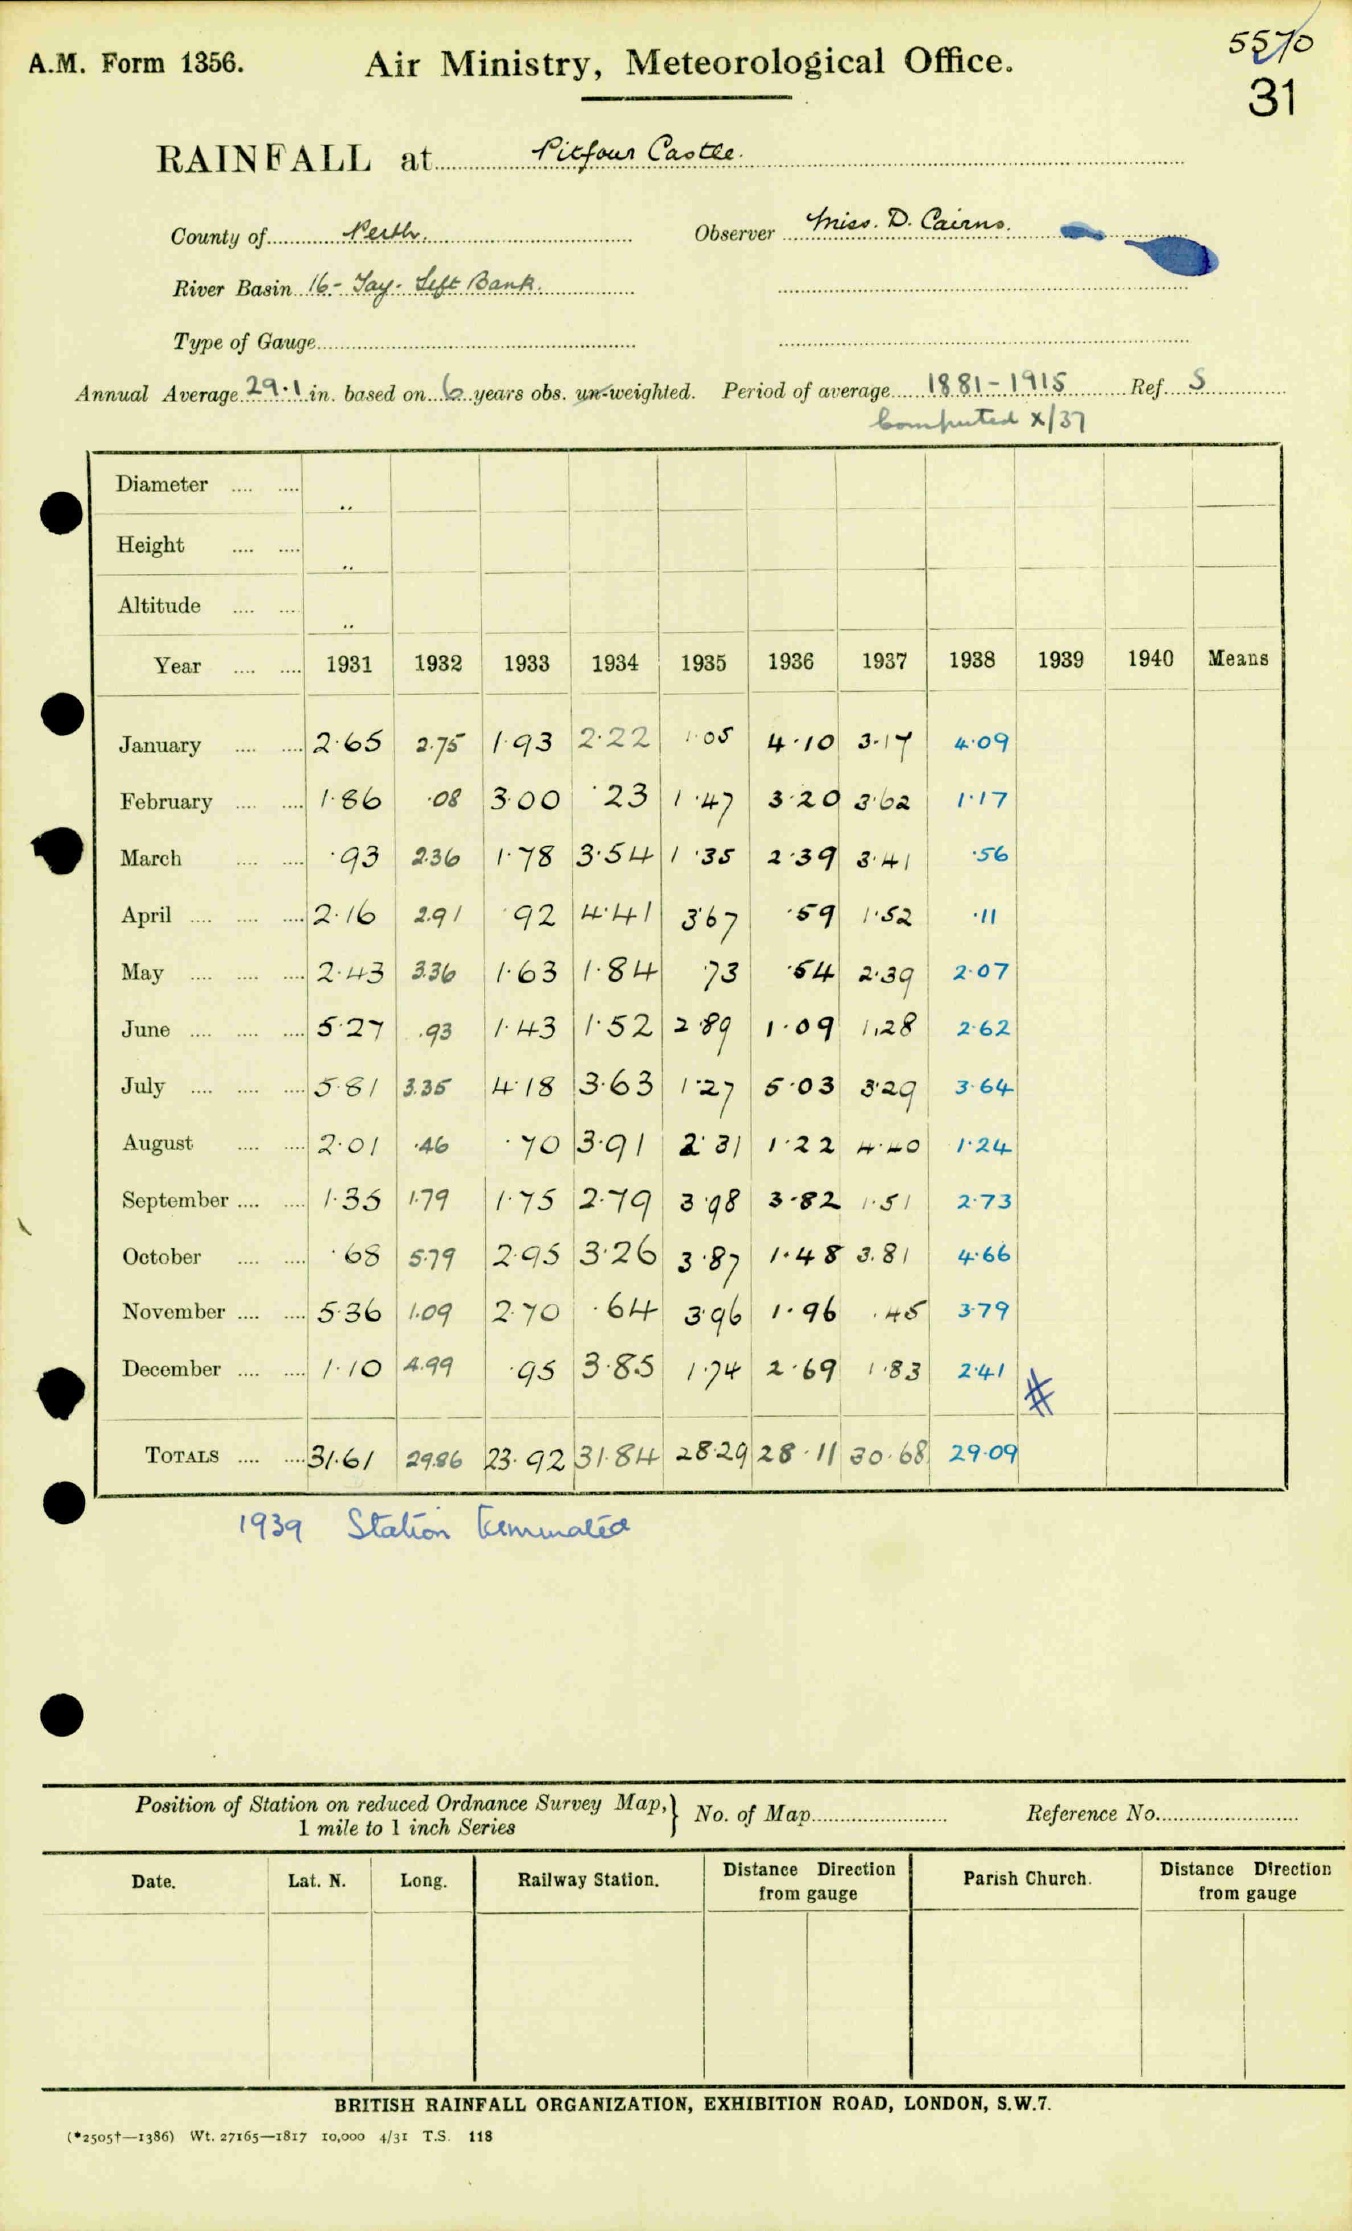 5570
A.M. Form 1356. Air Ministry, Meteorological Office.
31
RAINFALL at Pitfour Castle.
County of Perth. Observer Miss. D. Cairns.
River Basin 16 - Tay - Left Bank.
Type of Gauge
Annual Average 29.1 in. based on 6 years obs. un-weighted. Period of average 1881-1915 Ref. S
Computed X/37
Diameter .... .... ..
Height .... .... ..
Altitude .... .... ..
Year .... .... 1931 1932 1933 1934 1935 1936 1937 1938 1939 1940 Means
January .... .... 2.65 2.75 1.93 2.22 1.05 4.10 3.17 4.09
February .... .... 1.86 .08 3.00 .23 1.47 3.20 3.62 1.17
March .... .... .93 2.36 1.78 3.54 1.35 2.39 3.41 .56
April .... .... .... 2.16 2.91 .92 4.41 3.67 .59 1.52 .11
May .... .... .... 2.43 3.36 1.63 1.84 .73 .54 2.39 2.07
June .... .... .... 5.27 .93 1.43 1.52 2.89 1.09 1.28 2.62
July .... .... .... 5.81 3.35 4.18 3.63 1.27 5.03 3.29 3.64
August .... .... 2.01 .46 .70 3.91 2.31 1.22 4.40 1.24
September .... .... 1.35 1.79 1.75 2.79 3.98 3.82 1.51 2.73
October .... .... .68 5.79 2.95 3.26 3.87 1.48 3.81 4.66
November .... .... 5.36 1.09 2.70 .64 3.96 1.96 .45 3.79
December .... .... 1.10 4.99 .95 3.85 1.74 2.69 1.83 2.41 #
TOTALS .... .... 31.61 29.86 23.92 31.84 28.29 28.11 30.68 29.09
1939 Station terminated
Position of Station on reduced Ordnance Survey Map, } No. of Map Reference No.
1 mile to 1 inch Series
Date. Lat. N. Long. Railway Station. Distance Direction Parish Church. Distance Direction
from gauge from gauge
BRITISH RAINFALL ORGANIZATION, EXHIBITION ROAD, LONDON, S.W.7.
(*2505†—1386) Wt. 27165—1817 10,000 4/31 T.S. 118